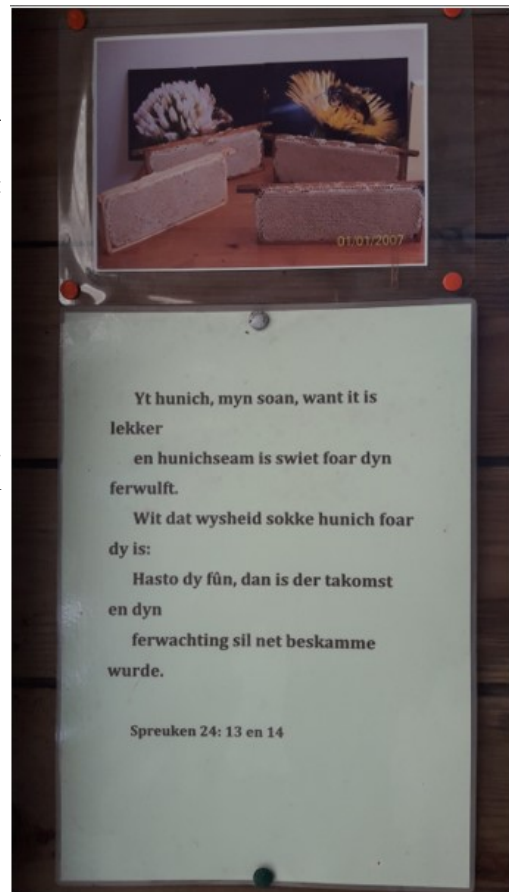 01/01/2007
Yt hunich, myn soan, want it is
lekker
en hunichseam is swiet foar dyn
ferwulft.
Wit dat wysheid sokke hunich foar
dy is:
Hasto dy fûn, dan is der takomst
en dyn
ferwachting sil net beskamme
wurde.
Spreuken 24: 13 en 14